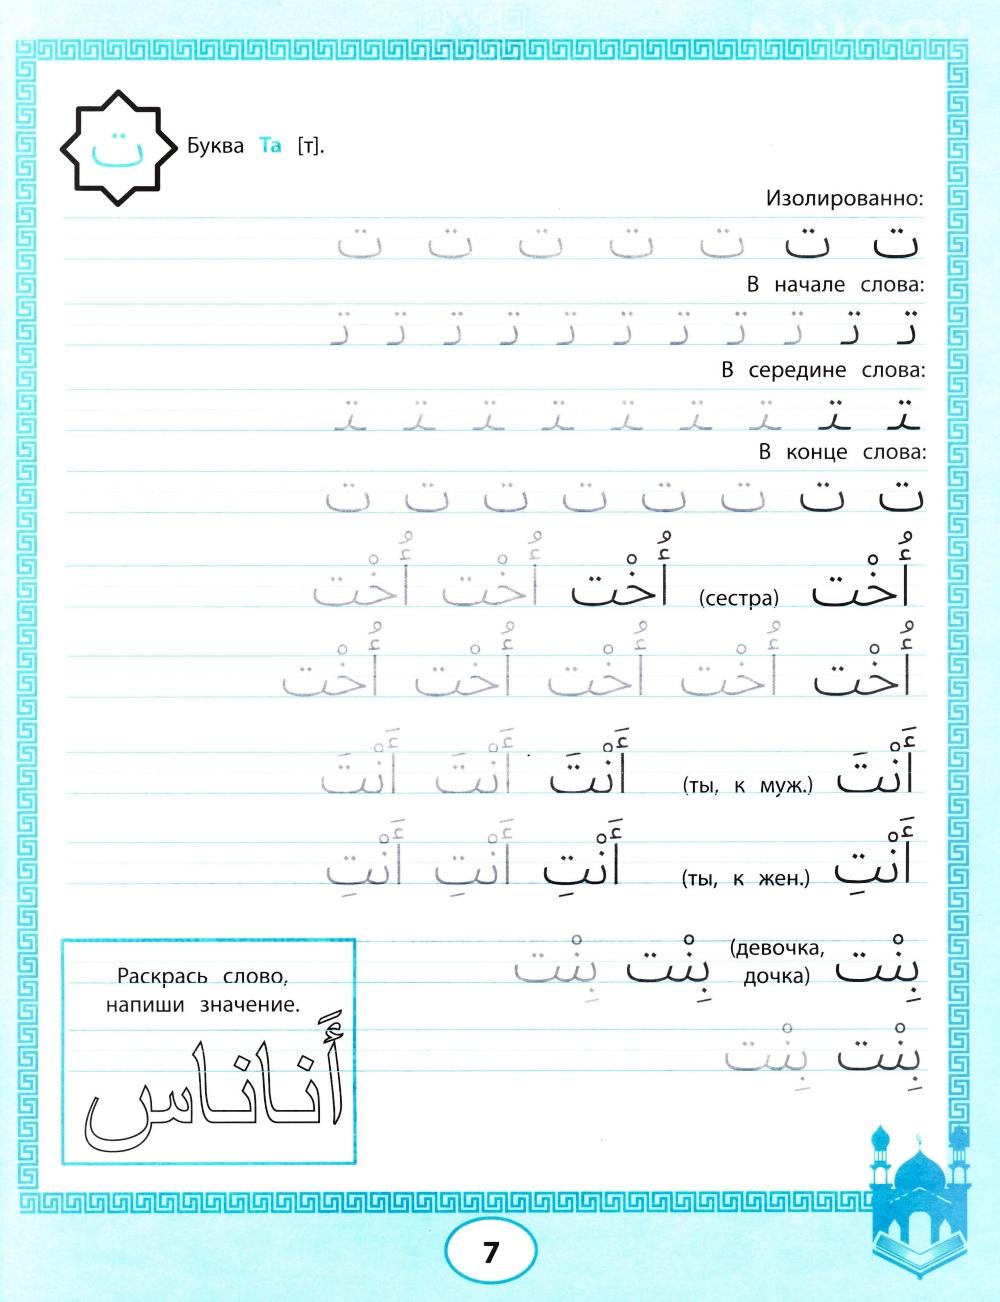 ت
Буква Та [т].
Изолированно:
ت ت ت ت ت ت ت
В начале слова:
تـ تـ تـ تـ تـ تـ تـ تـ تـ تـ تـ
В середине слова:
ـتـ ـتـ ـتـ ـتـ ـتـ ـتـ ـتـ ـتـ ـتـ
В конце слова:
ـت ـت ـت ـت ـت ـت ـت ـت
أُخْت (сестра) أُخْت أُخْت أُخْت
أُخْت أُخْت أُخْت أُخْت أُخْت
أَنْتَ (ты, к муж.) أَنْتَ أَنْتَ أَنْتَ
أَنْتِ (ты, к жен.) أَنْتِ أَنْتِ أَنْتِ
بِنْت (девочка, дочка) بِنْت بِنْت
بِنْت بِنْت
Раскрась слово,
напиши значение.
أَناناس
7